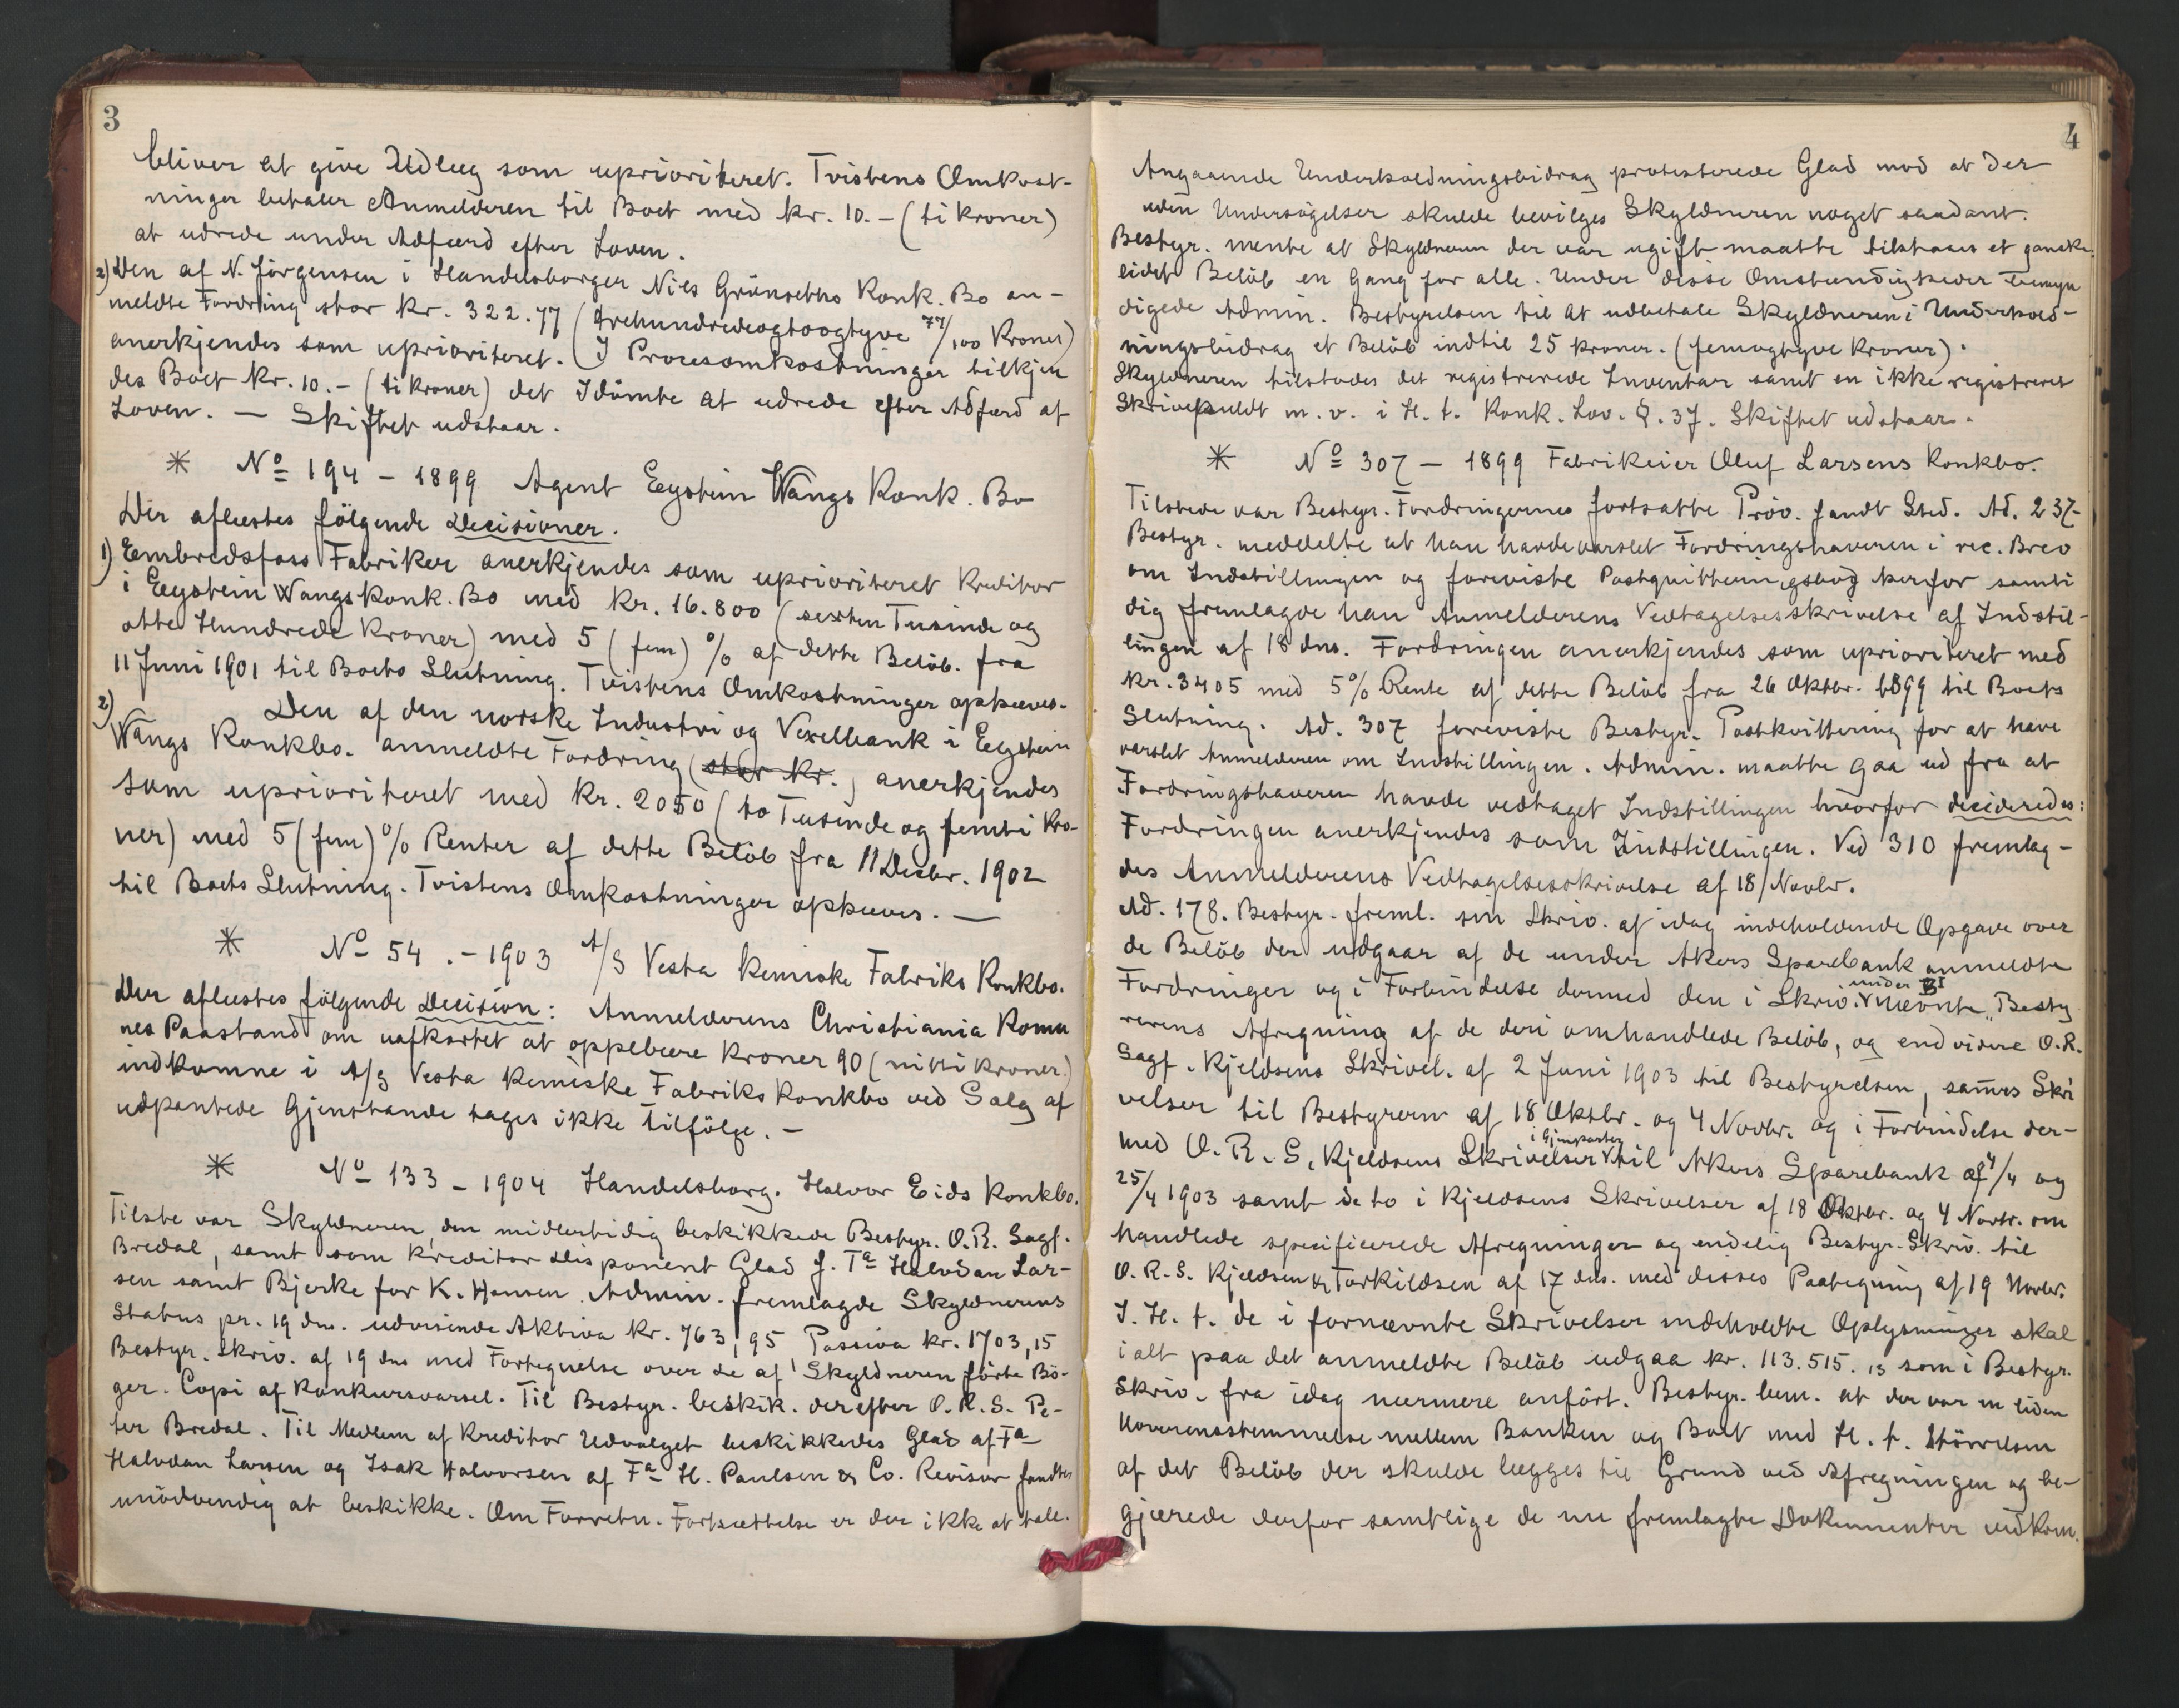 3
bliver at give Udlæg som uprioriteret. Tvistens Omkost-
ninger betaler Anmelderen til Boet med kr. 10.- (ti kroner)
at udrede under Adfærd efter Loven.
2) Den af N. Jörgensen i Handelsborger Nils Grönseths Konk. Bo an-
meldte Fordring stor kr. 322.77 (trehundredeogtoogtyve 77/100 Kroner)
anerkjendes som uprioriteret. I Procesomkostninger tilkjen
des Boet kr. 10.- (ti kroner) det Idömte at udrede efter Adfærd af
Loven. — Skiftet udstaar.
* No 194 - 1899 Agent Eystein Wangs Konk. Bo
Der aflæstes fölgende Decisioner.
1) Embredsfoss Fabriker anerkjendes som uprioriteret Kreditor
i Eystein Wangs Konk. Bo med kr. 16.800 (sexten Tusinde og
otte Hundrede Kroner) med 5 (fem) % af dette Belöb fra
11 Juni 1901 til Boets Slutning. Tvistens Omkostninger ophæves.
2) Den af den norske Industri og Vexelbank i Eystein
Wangs Konkbo. anmeldte Fordring (stor kr.) anerkjendes
som uprioriteret med kr. 2050 (to Tusende og femti Kro-
ner) med 5 (fem) % Renter af dette Belöb fra 11 Decbr. 1902
til Boets Slutning. Tvistens Omkostninger ophæves. —
* No 54. - 1903 A/S Vesta kemiske Fabriks Konkbo.
Der aflæstes fölgende Decision: Anmelderens Christiania Komu
nes Paastand om uafkortet at oppebære Kroner 90 (nitti kroner)
indkomne i A/S Vesta kemiske Fabriks Konkbo ved Salg af
udpantede Gjenstande tages ikke tilfölge. —
* No 133 - 1904 Handelsborg. Halvor Eids Konkbo.
Tilste var Skyldneren, den midlertidig beskikkede Bestyr. O.R. Sagf.
Bredal, samt som Kreditor Disponent Glad f. Fa Halvdan Lar-
sen samt Bjerke for K. Hansen. Admin. fremlagde Skyldnerens
Status pr. 19 ds. udvisende Aktiva kr. 763,95 Passiva kr. 1703,15
Bestyr. Skriv. af 19 ds med Fortegnelse over de af Skyldneren förte Bö-
ger. Copi af Konkursvarsel. Til Bestyr. beskik. derefter O.R.S. Pe-
ter Bredal. Til Medlem af Kreditor Udvalget beskikkedes Glad af Fa
Halvdan Larsen og Isak Halvorsen af Fa H. Paulsen & Co. Revisor fandtes
unödvendig at beskikke. Om Forretn. Fortsættelse er der ikke at tale.
4
Angaaende Underholdningsbidrag protesterede Glad mod at der
uden Undersögelser skulde bevilges Skyldneren noget saadant.
Bestyr. mente at Skyldneren der var ugift maatte tilstaaes et ganske
lidet Belöb en Gang for alle. Under disse Omstændigheder bemyn
digede Admin. Bestyrelsen til at udbetale Skyldneren i Underhold-
ningsbidrag et Belöb indtil 25 kroner. (femogtyve Kroner).
Skyldneren tilstodes det registrerede Inventar samt en ikke registreret
Skrivepuldt m.v. i H. t. Konk. Lov. §. 37. Skiftet udstaar.
* No 307 - 1899 Fabrikeier Oluf Larsens Konkbo.
Tilstede var Bestyr. Fordringernes fortsatte Pröv. fandt Sted. Ad. 237-
Bestyr. meddelte at han havde varslet Fordringshaveren i rec. Brev
om Indstillingen og foreviste Postquitteringsbog herfor samti
dig fremlagde han Anmelderens Vedtagelsesskrivelse af Indstil-
lingen af 18 dns. Fordringen anerkjendes som uprioriteret med
kr. 3405 med 5% Rente af dette Belöb fra 26 Oktbr. 1899 til Boets
Slutning. Ad. 307 foreviste Bestyr. Postkvittering for at have
varslet Anmelderen om Indstillingen. Admin. maatte gaa ud fra at
Fordringshaveren havde vedtaget Indstillingen hvorfor decideredes:
Fordringen anerkjendes som Indstillingen. Ved 310 fremlag-
des Anmelderens Vedtagelsesskrivelse af 18/Novbr.
Ad. 178. Bestyr. freml. sin Skriv. af idag indeholdende Opgave over
de Belöb der udgaar af de under Akers Sparebank anmeldte
Fordringer og i Forbindelse dermed den i Skriv. under BI nævnte „Besty
rerens Afregning af de deri omhandlede Belöb, og end videre O.R.
Sagf. Kjeldsens Skrivel. af 2 Juni 1903 til Bestyrelsen, sam̄es Skri
velser til Bestyreren af 18 Oktbr. og 4 Novbr. og i Forbindelse der-
med O.R.S. Kjeldsens Skrivelser i Gjenparter til Akers Sparebank af 4/4 og
25/4 1903 samt de to i Kjeldsens Skrivelser af 18 Oktbr. og 4 Novbr. om
handlede specificerede Afregninger og endelig Bestyr. Skriv. til
O.R.S. Kjeldsen & Torkildsen af 17 ds. med disses Paategning af 19 Novbr.
I. H. t. de i fornævnte Skrivelser indeholdte Oplysninger skal
ialt paa det anmeldte Belöb udgaa kr. 113.515.13 som i Bestyr.
Skriv. fra idag nærmere anfört. Bestyr. bem. at der var en liden
Uoverensstemmelse mellem Banken og Boet med H. t. Störrelsen
af det Belöb der skulde lægges til Grund ved Afregningen og be-
gjærede derfor samtlige de nu fremlagte Dokumenter vedkom.